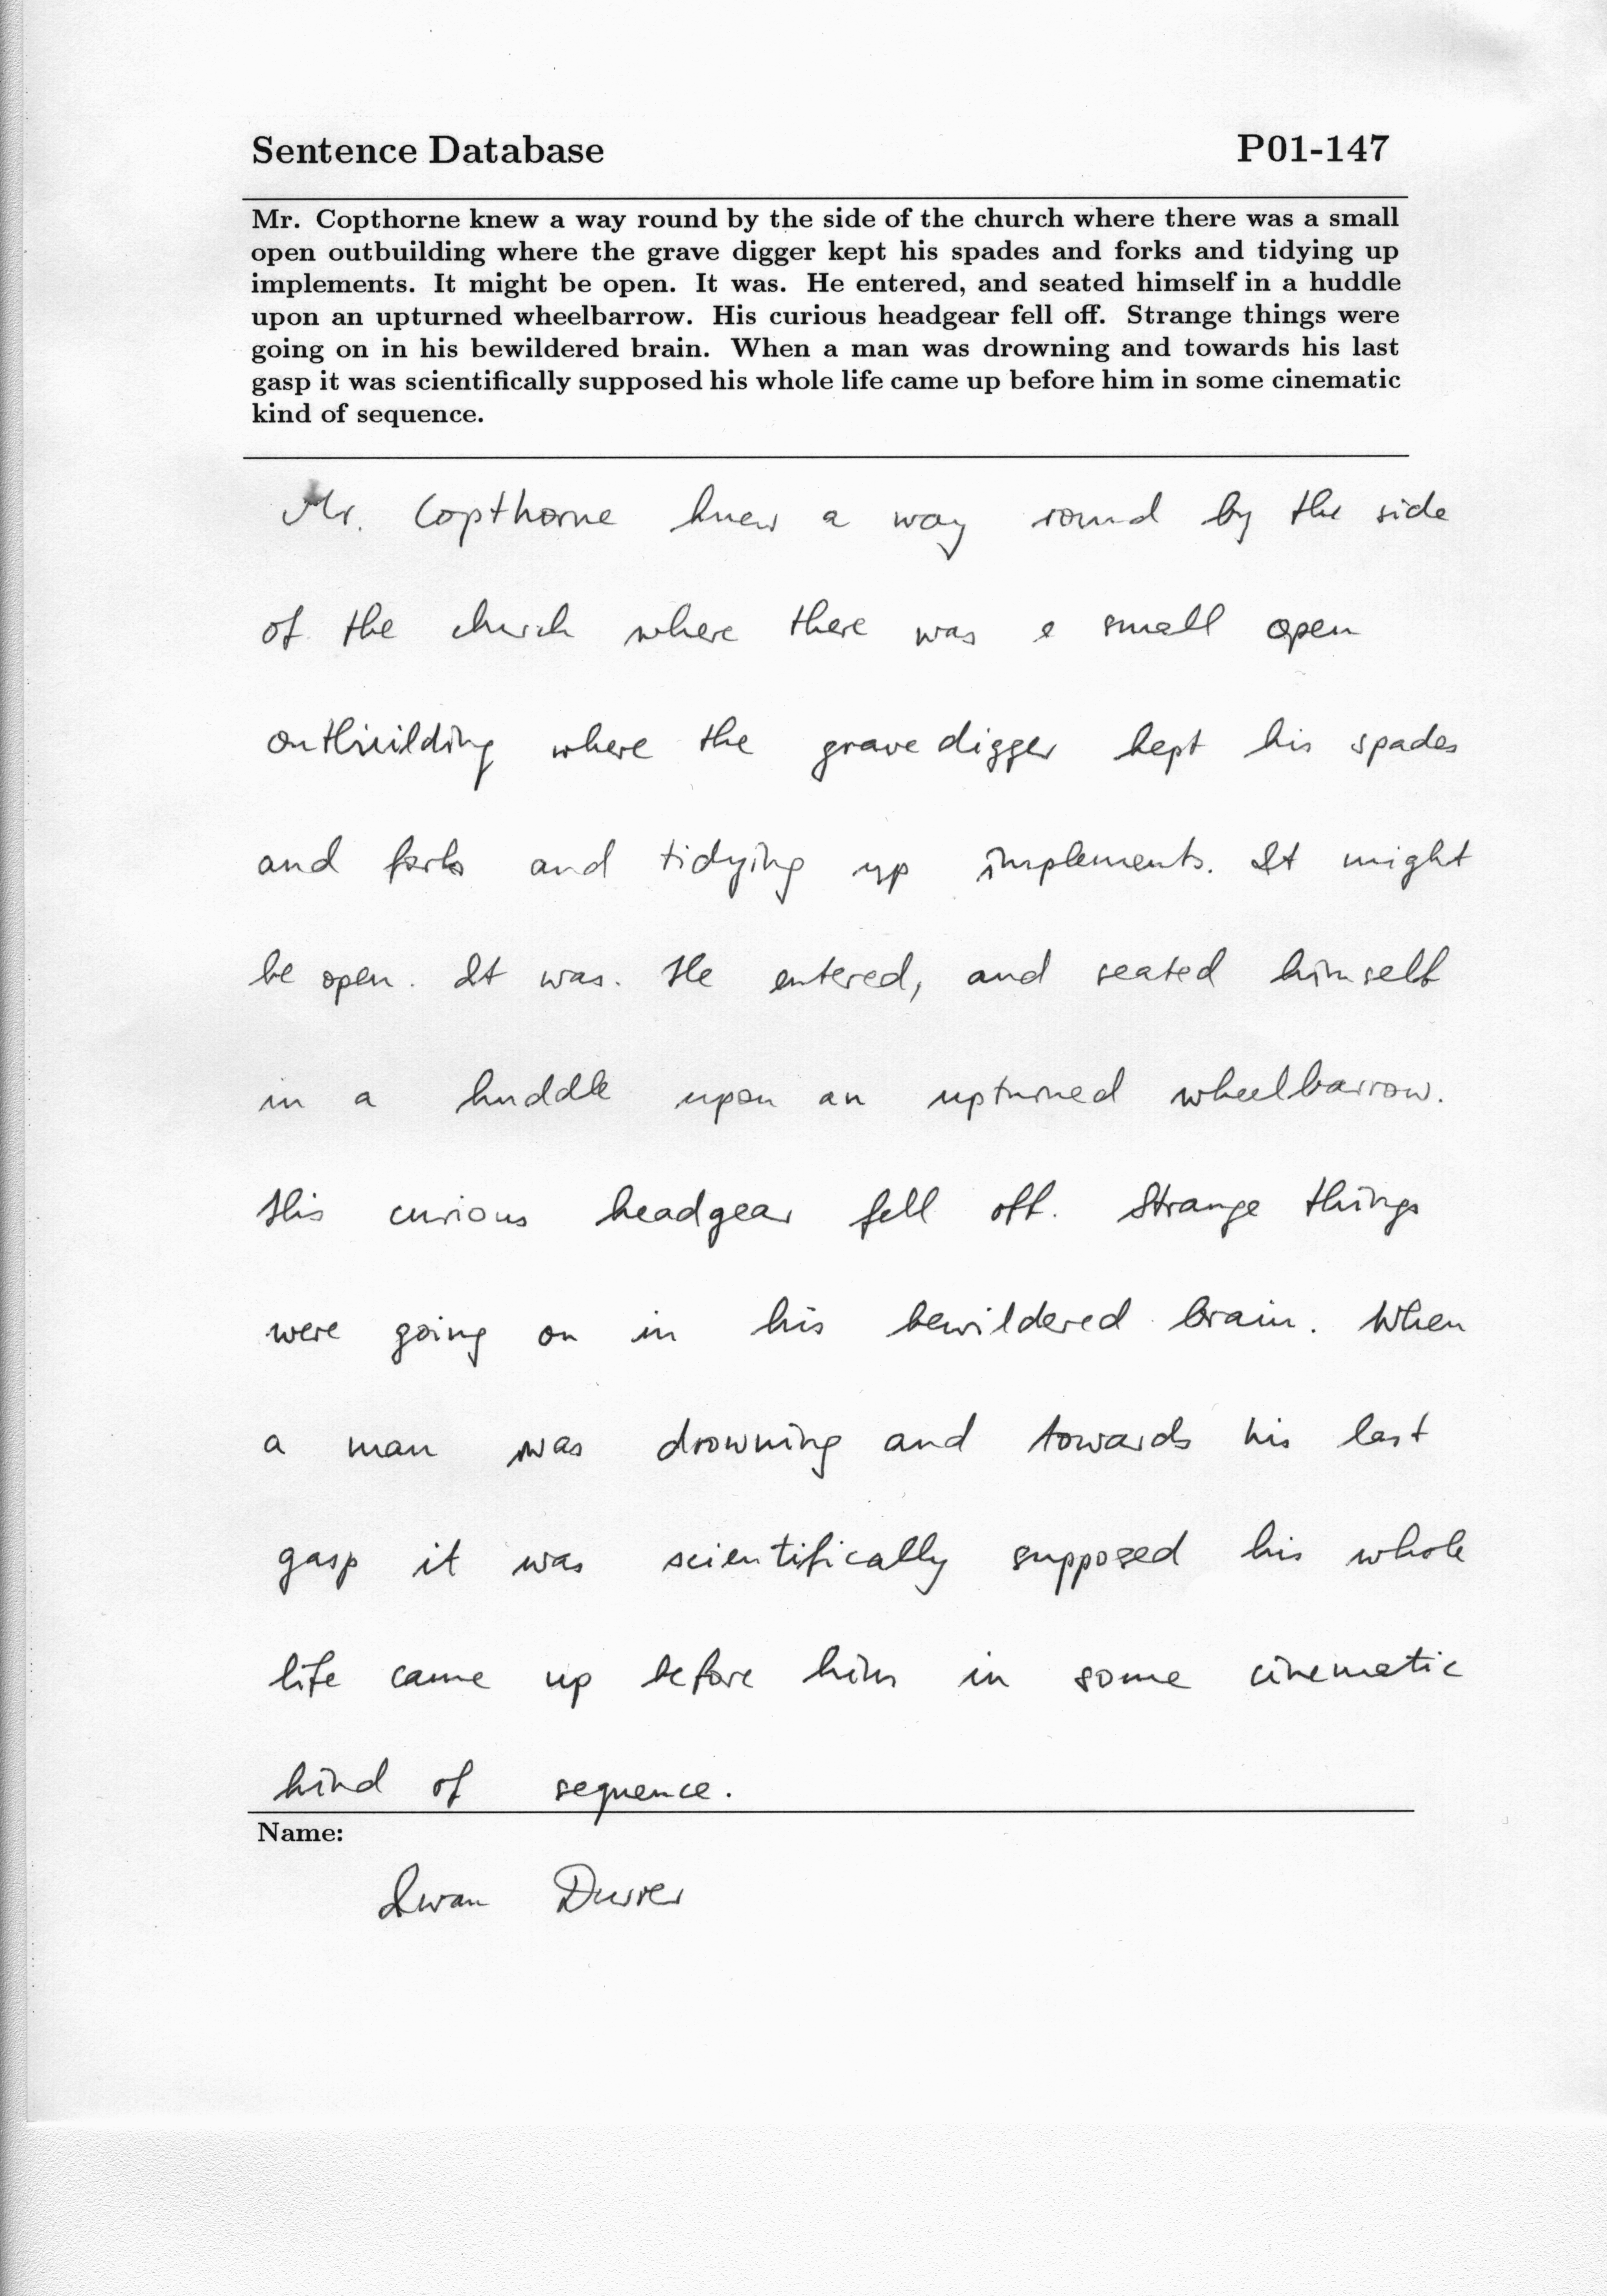 Sentence Database P01-147
Mr. Copthorne knew a way round by the side of the church where there was a small
open outbuilding where the grave digger kept his spades and forks and tidying up
implements. It might be open. It was. He entered, and seated himself in a huddle
upon an upturned wheelbarrow. His curious headgear fell off. Strange things were
going on in his bewildered brain. When a man was drowning and towards his last
gasp it was scientifically supposed his whole life came up before him in some cinematic
kind of sequence.
Mr. Copthorne knew a way round by the side
of the church where there was a small open
outbuilding where the grave digger kept his spades
and forks and tidying up implements. It might
be open. It was. He entered, and seated himself
in a huddle upon an upturned wheelbarrow.
His curious headgear fell off. Strange things
were going on in his bewildered brain. When
a man was drowning and towards his last
gasp it was scientifically supposed his whole
life came up before him in some cinematic
kind of sequence.
Name:
Iwan